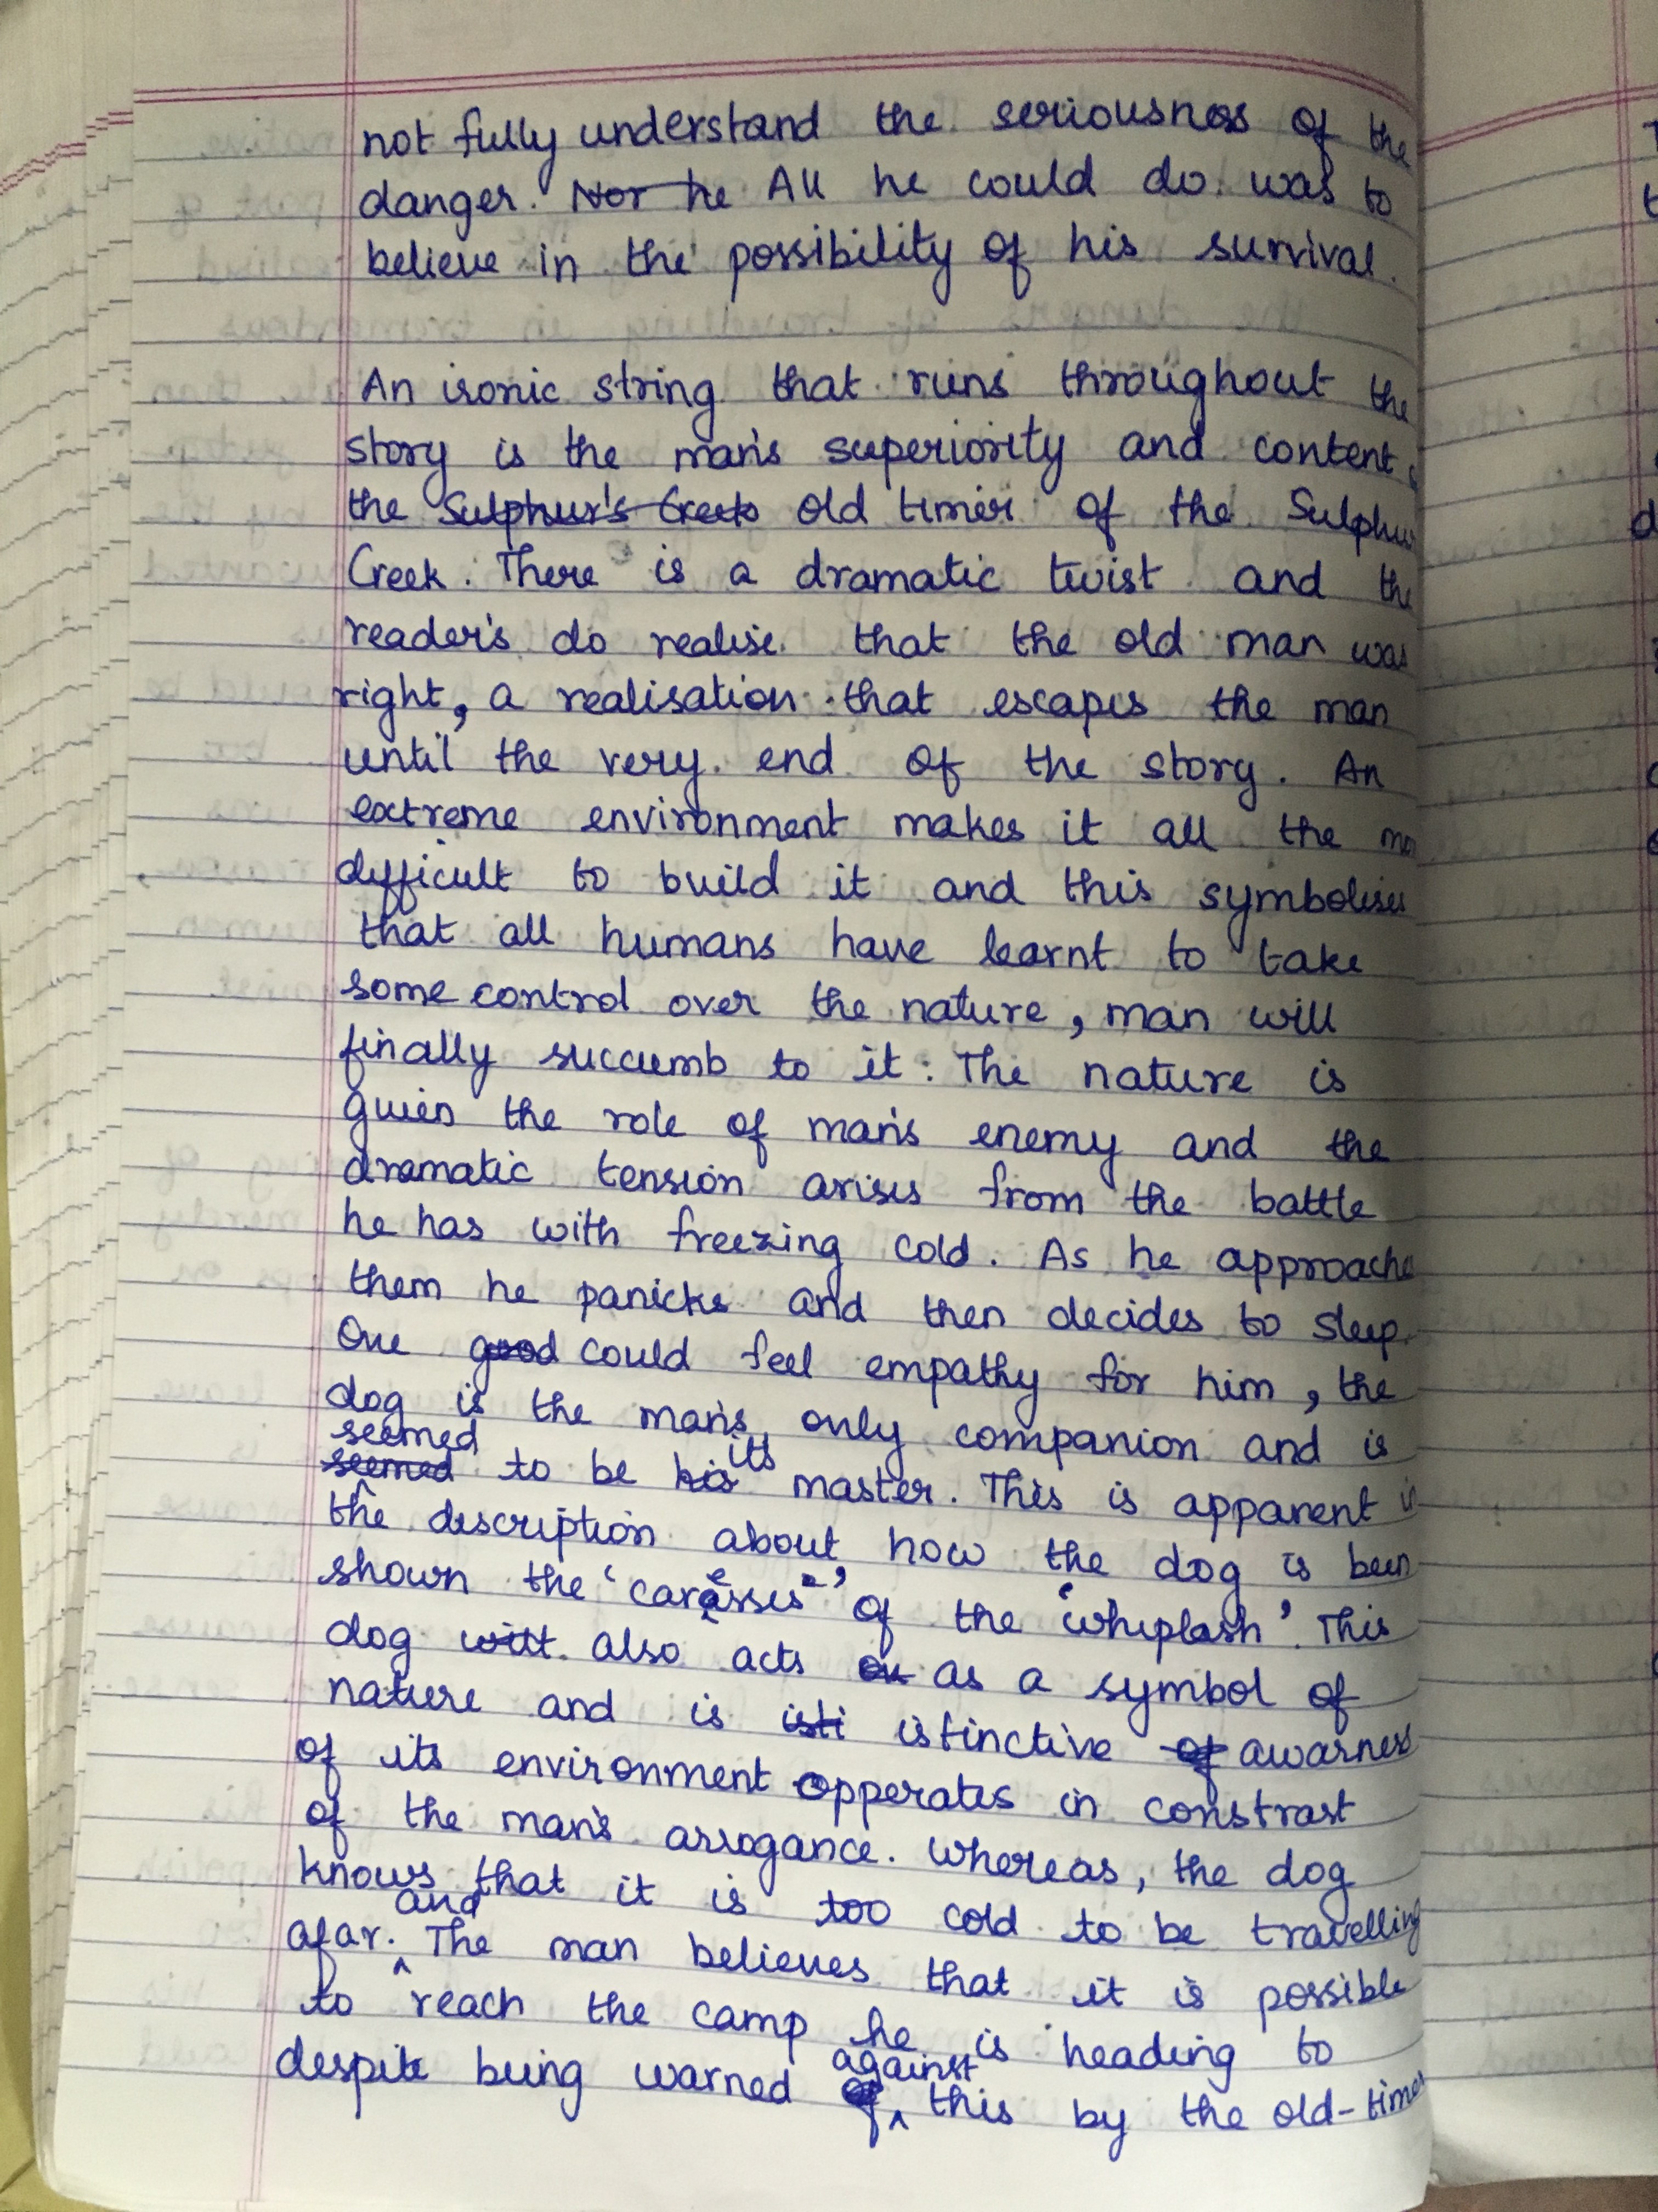 not fully understand the seriousness of the
danger. Nor he All he could do was to
believe in the possibility of his survival.
An ironic string that runs throughout the
story is the man's superiority and content
the Sulphur's Creek old timer of the Sulphur
Creek. There is a dramatic twist and the
reader's do realise that the old man was
right, a realisation that escapes the man
until the very end of the story. An
extreme environment makes it all the
difficult to build it and this symbolises
that all humans have learnt to take
some control over the nature, man will
finally succumb to it. The nature is
given the role of man's enemy and the
dramatic tension arises from the battle
he has with freezing cold. As he approache
them he panicks and then decides to sleep.
One good could feel empathy for him, the
dog is the man's only companion and is
seemed
seemed to be his its master. This is apparent in
the description about how the dog is been
shown the 'caresses' of the 'whiplash'. This
dog will also acts as a symbol of
nature and is isti istinctive of awarness
of its environment opperates in constrast
of the man's arrogance. Whereas, the dog
knows that it is too cold to be travelling
afar. and The man believes that it is possible
to reach the camp he is heading to
despite being warned of against this by the old-timer